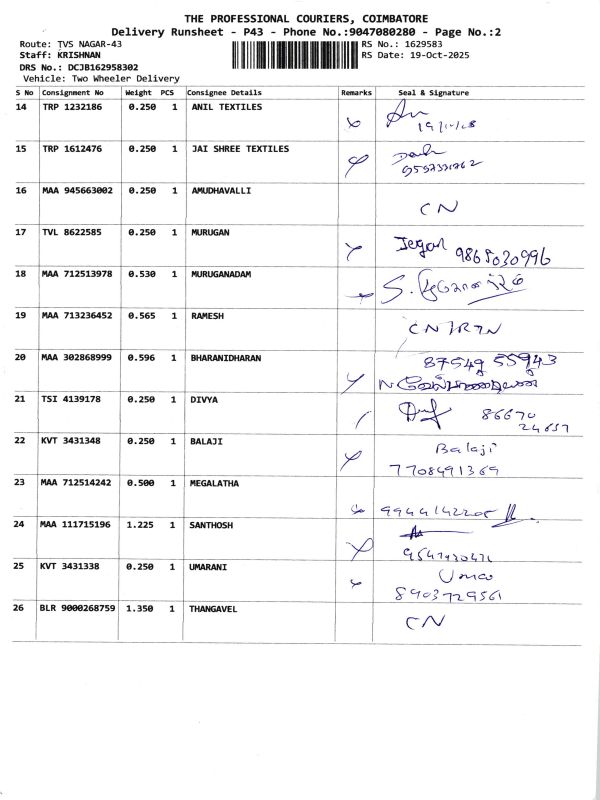 THE PROFESSIONAL COURIERS, COIMBATORE
Delivery Runsheet - P43 - Phone No.:9047080280 - Page No.:2
Route: TVS NAGAR-43 RS No.: 1629583
Staff: KRISHNAN RS Date: 19-Oct-2025
DRS No.: DCJB162958302
Vehicle: Two Wheeler Delivery
S No Consignment No Weight PCS Consignee Details Remarks Seal & Signature
14 TRP 1232186 0.250 1 ANIL TEXTILES
15 TRP 1612476 0.250 1 JAI SHREE TEXTILES
16 MAA 945663002 0.250 1 AMUDHAVALLI
CN
17 TVL 8622585 0.250 1 MURUGAN
Jegan 9865030996
18 MAA 712513978 0.530 1 MURUGANADAM
19 MAA 713236452 0.565 1 RAMESH
CN/RTN
20 MAA 302868999 0.596 1 BHARANIDHARAN
87549 55943
21 TSI 4139178 0.250 1 DIVYA
86670
24657
22 KVT 3431348 0.250 1 BALAJI
Balaji
7708491369
23 MAA 712514242 0.500 1 MEGALATHA
24 MAA 111715196 1.225 1 SANTHOSH
25 KVT 3431338 0.250 1 UMARANI
8903729561
26 BLR 9000268759 1.350 1 THANGAVEL
CN